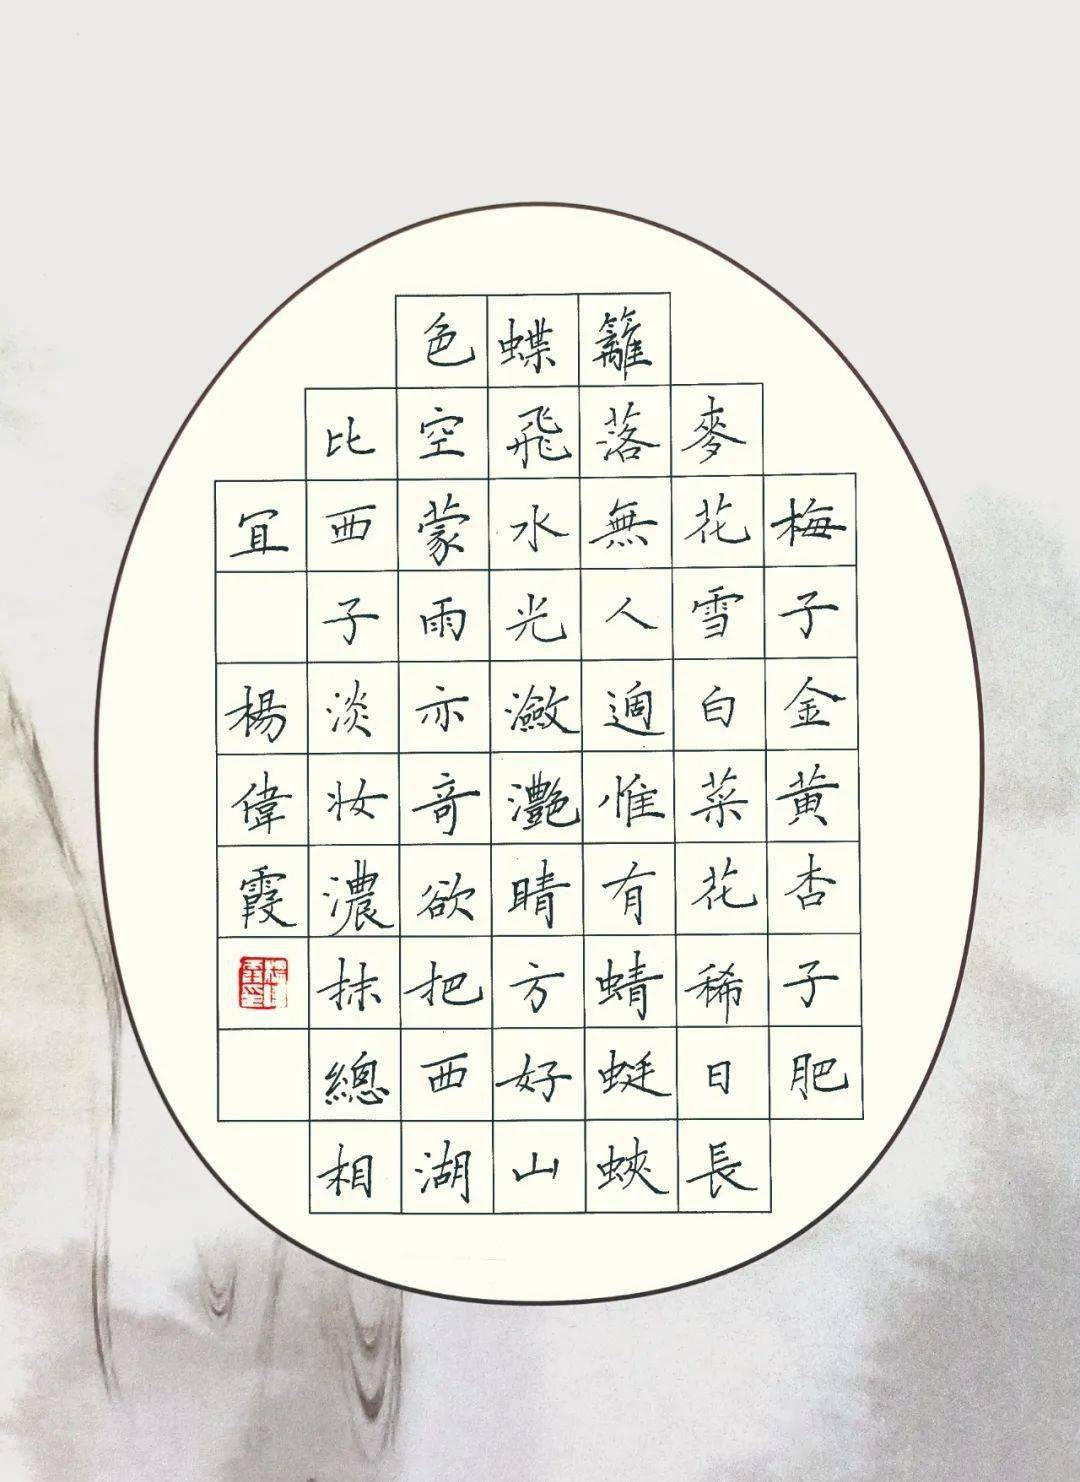 梅子金黄杏子肥
麥花雪白菜花稀日長
籬落無人適惟有蜻蜓蛺
蝶飛水光瀲灧晴方好山
色空蒙雨亦竒欲把西湖
比西子淡妝濃抹總相
宜 楊偉霞